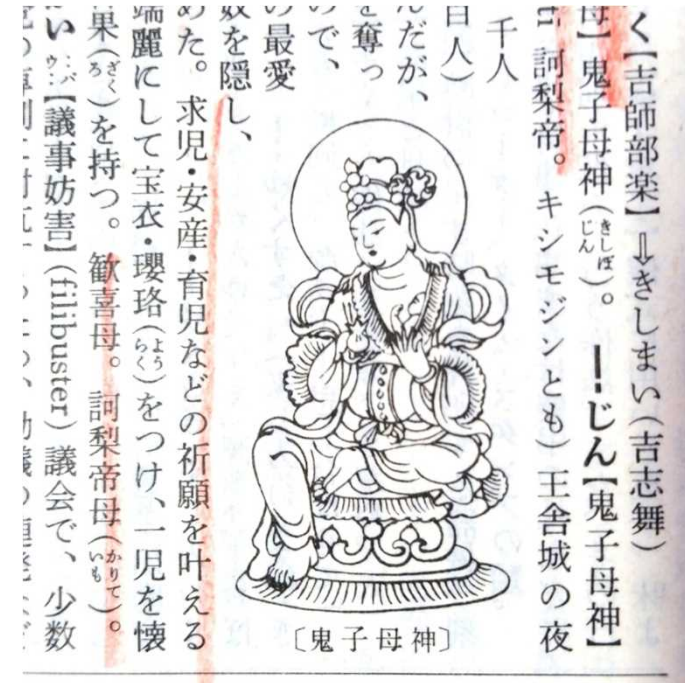 く【吉師部楽】⇓きしまい(吉志舞)
母】鬼子母神(きしぼじん)。 ━じん【鬼子母神】
訶梨帝。キシモジンとも)王舎城の夜
千人
百人)
んだが、
を奪っ
ので、
の最愛
を隠し、
めた。求児・安産・育児などの祈願を叶える
端麗にして宝衣・瓔珞(ようらく)をつけ、一児を懐
果(ざくろ)を持つ。歓喜母。訶梨帝母(かりていも)。
い【議事妨害】(filibuster)議会で、少数
〔鬼子母神〕